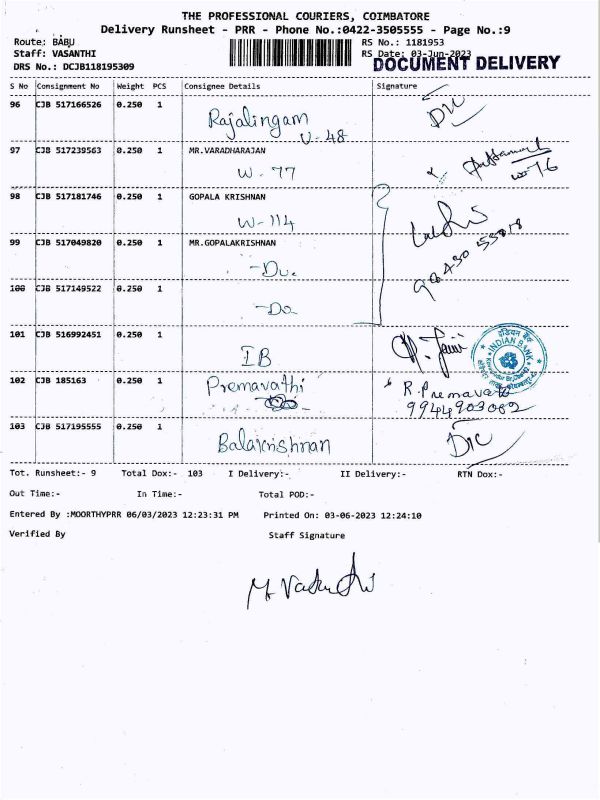 THE PROFESSIONAL COURIERS, COIMBATORE
Delivery Runsheet - PRR - Phone No.:0422-3505555 - Page No.:9
Route: BABU
RS No.: 1181953
Staff: VASANTHI
RS Date: 03-Jun-2023
DRS No.: DCJB118195309
DOCUMENT DELIVERY
S No Consignment No Weight PCS Consignee Details Signature
96 CJB 517166526 0.250 1 Rajalingam
U-48
97 CJB 517239563 0.250 1 MR.VARADHARAJAN
W-77
98 CJB 517181746 0.250 1 GOPALA KRISHNAN
W-114
99 CJB 517049820 0.250 1 MR.GOPALAKRISHNAN
-Do-
100 CJB 517149522 0.250 1
-Do
101 CJB 516992451 0.250 1
IB
INDIAN BANK
102 CJB 185163 0.250 1 Premavathi
R.Premavathi
9944903062
103 CJB 517195555 0.250 1
Balakrishnan
Tot. Runsheet:- 9 Total Dox:- 103 I Delivery:- II Delivery:- RTN Dox:-
Out Time:- In Time:- Total POD:-
Entered By :MOORTHYPRR 06/03/2023 12:23:31 PM Printed On: 03-06-2023 12:24:10
Verified By Staff Signature